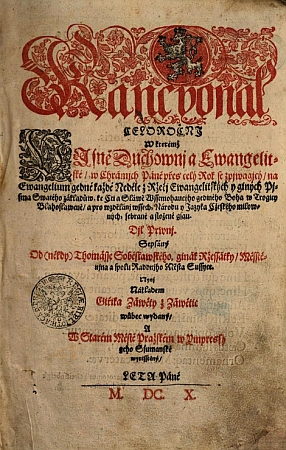 Kancyonál
CELOROČNJ
W kterémž
Pjsně Duchownj a Ewangelit-
ské/ w Chrámjch Páně přes celý Rok se zpjwagjcý/ na
Ewangelium gedné každé Neděle z Řečj Ewangelitských y giných Pj-
sma Swatého základůw/ ke Cti a Sláwě Wssemohaucýho gednoho Boha w Trogicy
Blahoslawené/ a pro wzdělánj wssech Národu y Jazyka Cžeského milow-
njch/ sebrané a složené gsau.
Djl Prwnj.
Sepsaný
Od (někdy) Thomásse Soběslawského, ginák Řessátky/ Měsstě-
njna a spolu Raddnjho Města Sussyce.
Nynj
Nákladem
Girjka Záwěty z Záwětic
wůbec wydaný/
A
W Starém Městě Pražském w Ympressy
geho Ssumanské
wytisstěný/
LETA Páně
M. DC. X.